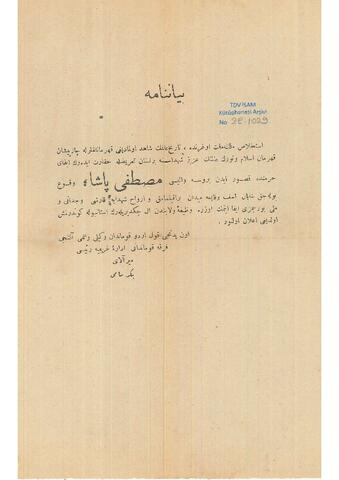 بياننامه
TDV İSAM
Kütüphanesi Arşivi
No 2E.1029
استخلاص مملكت اوغرنده ، تاريخ عالمك شاهد اولمادينى قهرمانلقلرله چارپيشان
قهرمان اسلام وتورك عزيز شهداسنه براستان تعريضله حقارت ايدهرك
حرمتده قصور ايدن بروسه واليسى مصطفى پاشا، وقوع
بولهجق شايان اسف وقايعه ميدان براقيلمامق و ارواح شهدايه قارشى وجدانى و
ملى بورجمزى ايفا ايتمك اوزره وظيفۀ ولايتدن ال چكديريلهرك استانبوله كوندرلمش
اولديغى اعلان اولنور .
اون يدنجى قول اردو قوماندان وكيلى
فرقه قوماندانى ادارۀ عرفيه رئيسى
ميرآلاى
بكر سامى